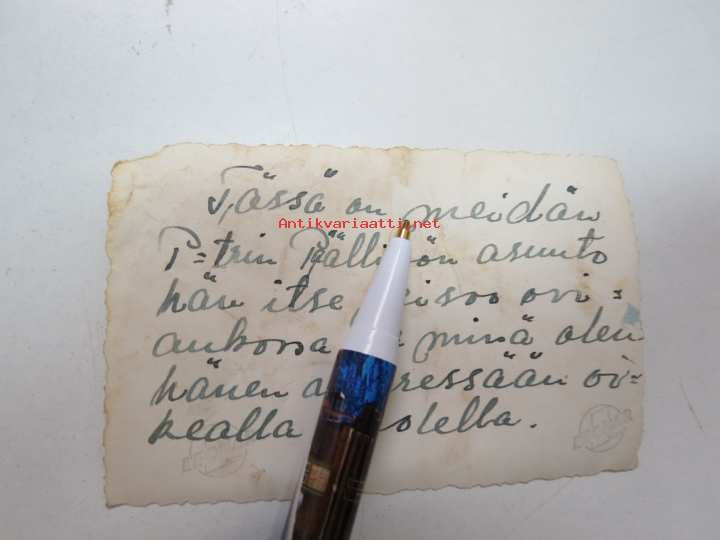 Tässä on meidän
Antikvariaatti.net
P=trin Päälli ön asunto
hän itse eisoo ovi=
aukossa minä olen
hänen a ressään oi=
kealla olella.